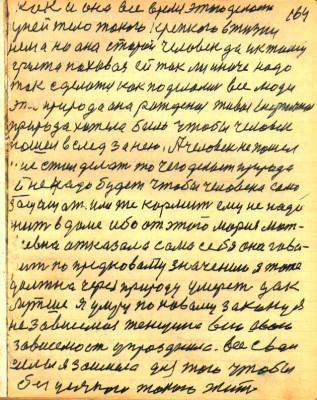 как и она все время этого делать 164
у ней тело такого крепкого в жизни
нема но она старой человек да и к тому
грыжа паховая ей так ли иначе надо
так сделать как поделали все люди
эт-- природа она рождения живая
природа хотела было чтобы человек
пошел в след за нею. А человек не пошел
и не стал делать то чего делает природа
ей не надо будет чтобы человека само
защищат. или же кормит ему не надо
жит в доме ибо от этого мария мат-
евна отказала сама себя она гово-
ит по предковому значению я тоже
должна через природу умерет дак
лутше я умру по новому закону я
не зависимая женщина всю свою
зависемост упразднила. все свои
силы я заимела для того чтобы
без уличного такого жит